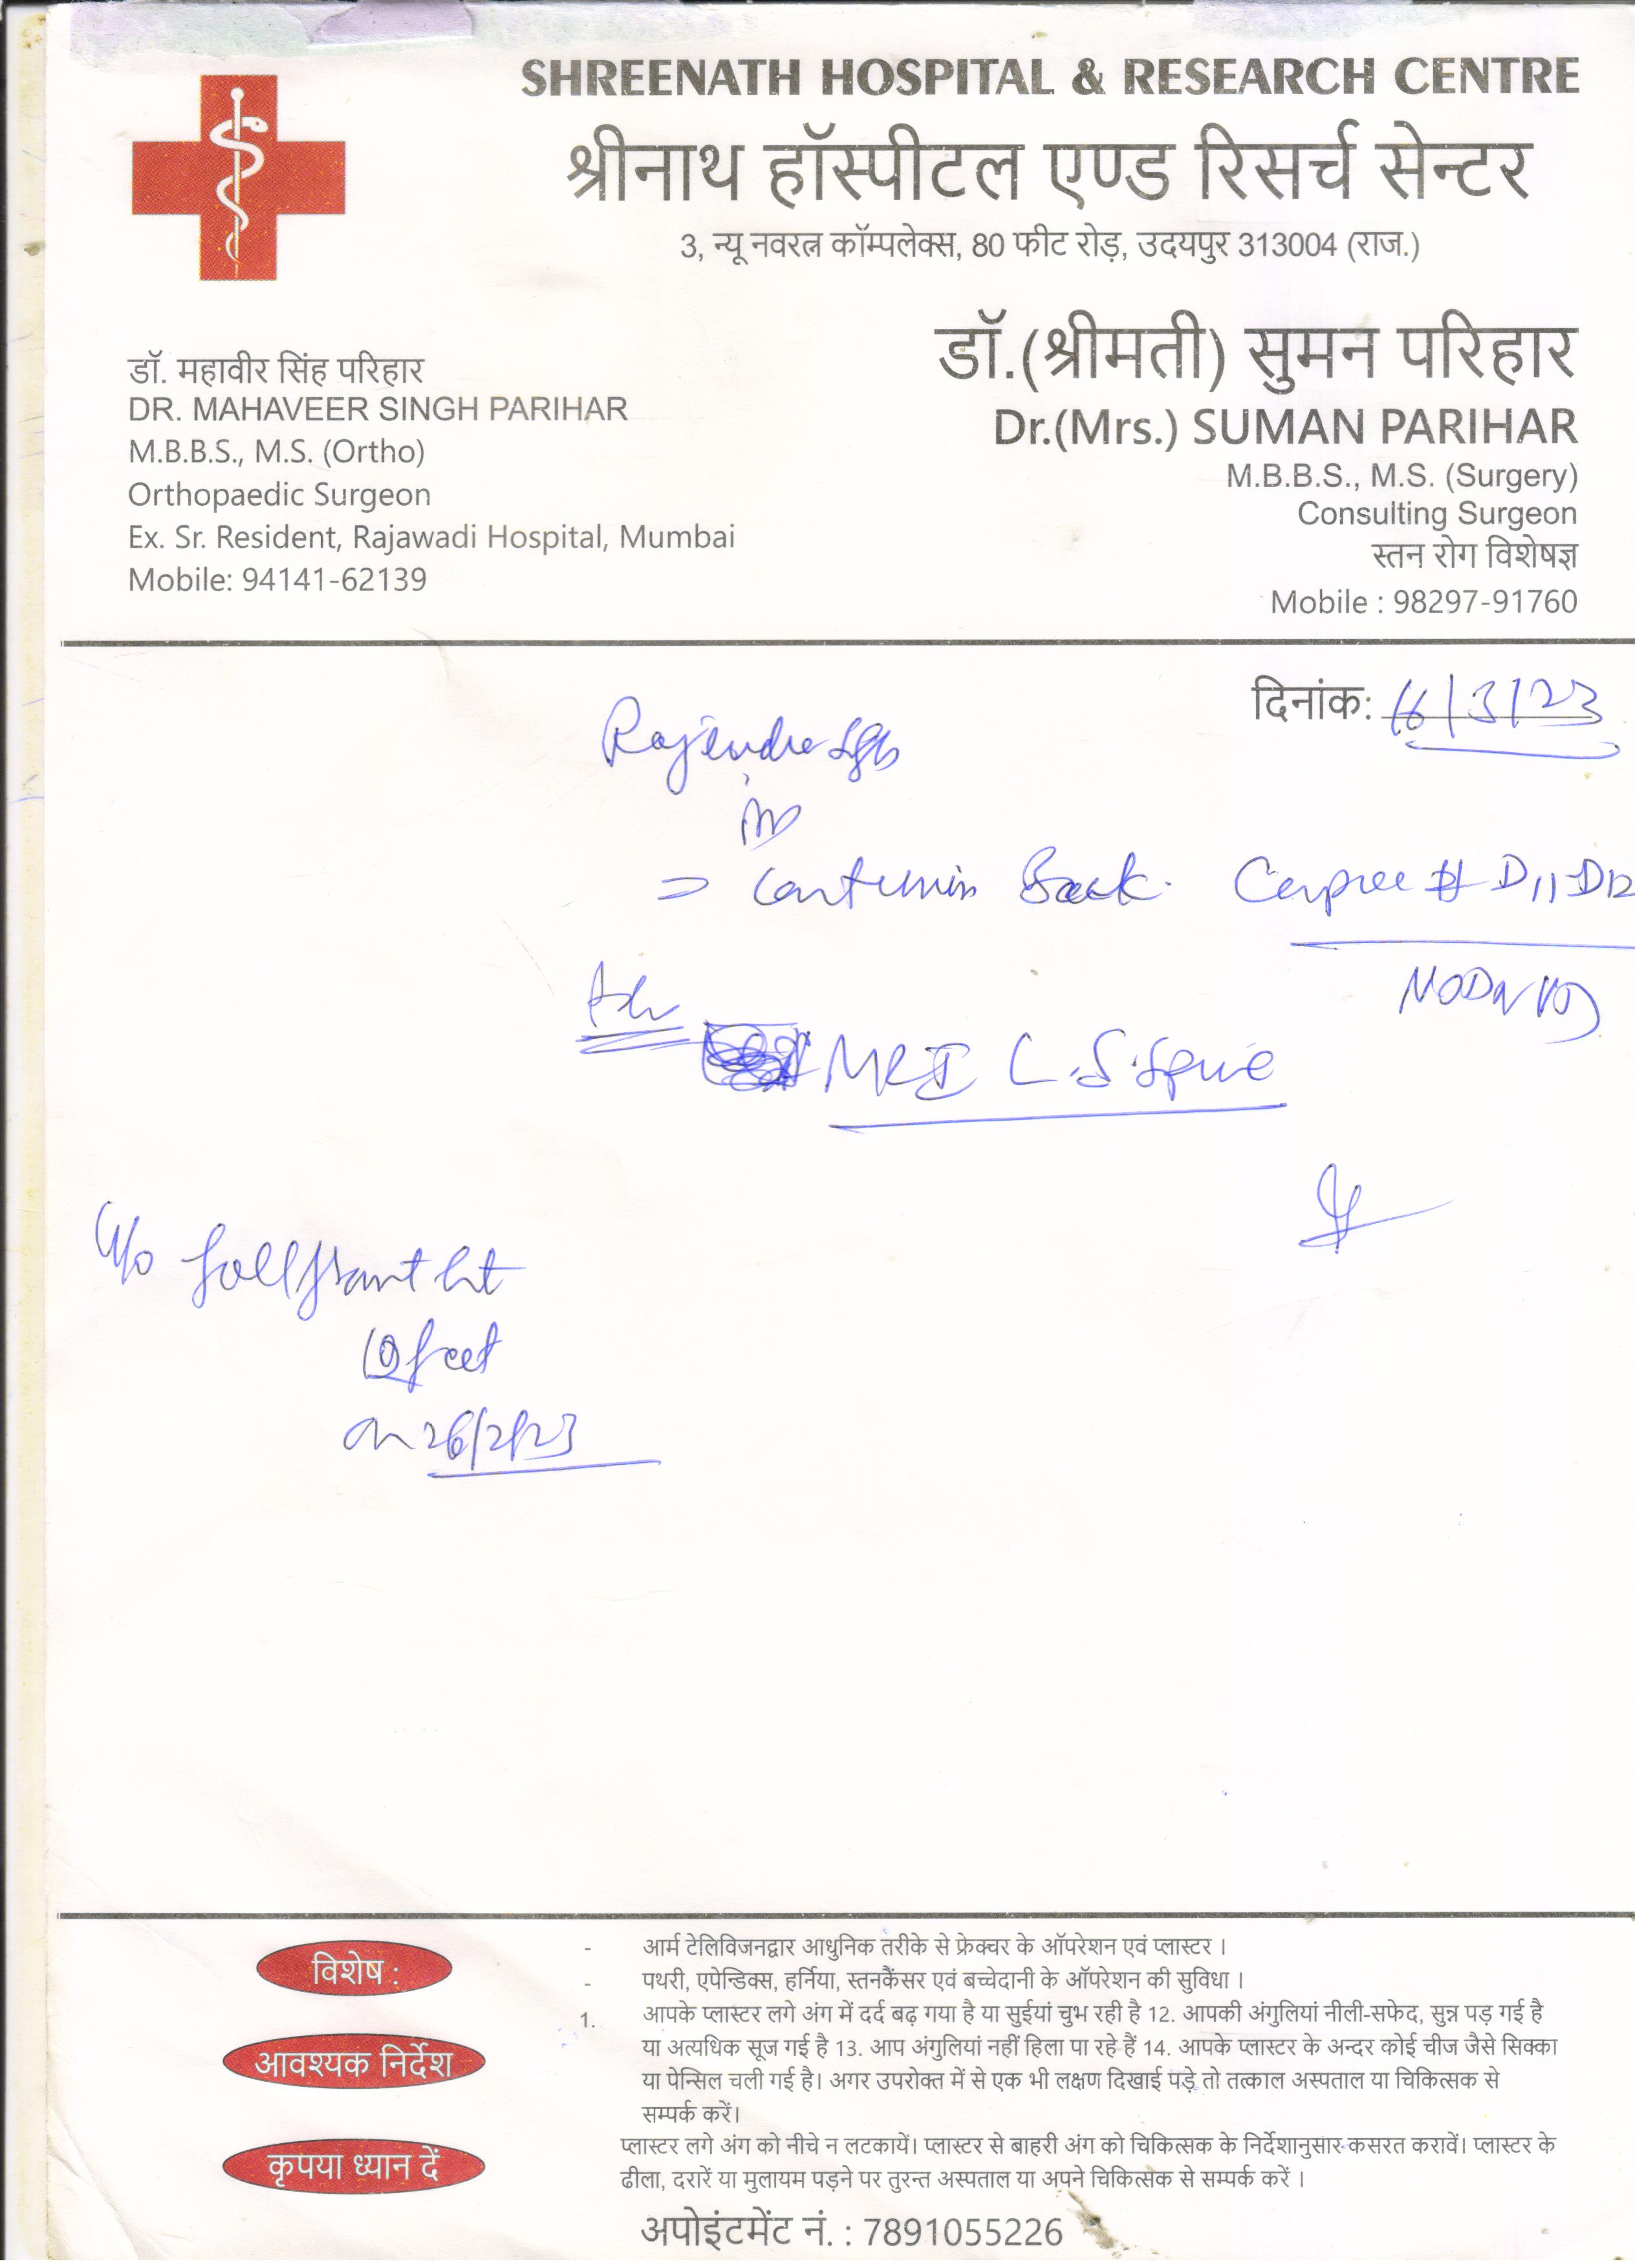 SHREENATH HOSPITAL & RESEARCH CENTRE
श्रीनाथ हॉस्पीटल एण्ड रिसर्च सेन्टर
3, न्यू नवरत्न कॉम्पलेक्स, 80 फीट रोड़, उदयपुर 313004 (राज.)
डॉ. महावीर सिंह परिहार
DR. MAHAVEER SINGH PARIHAR
M.B.B.S., M.S. (Ortho)
Orthopaedic Surgeon
Ex. Sr. Resident, Rajawadi Hospital, Mumbai
Mobile: 94141-62139
डॉ.(श्रीमती) सुमन परिहार
Dr.(Mrs.) SUMAN PARIHAR
M.B.B.S., M.S. (Surgery)
Consulting Surgeon
स्तन रोग विशेषज्ञ
Mobile : 98297-91760
दिनांक: 16/3/23
Rajendra
Back. # D11-D12
Adv
MRI L.S. Spine
feet
on 26/2/23
विशेष :
- आर्म टेलिविजनद्वार आधुनिक तरीके से फ्रेक्चर के ऑपरेशन एवं प्लास्टर ।
- पथरी, एपेन्डिक्स, हर्निया, स्तनकैंसर एवं बच्चेदानी के ऑपरेशन की सुविधा ।
आवश्यक निर्देश
1. आपके प्लास्टर लगे अंग में दर्द बढ़ गया है या सुईयां चुभ रही है 12. आपकी अंगुलियां नीली-सफेद, सुन्न पड़ गई है
या अत्यधिक सूज गई है 13. आप अंगुलियां नहीं हिला पा रहे हैं 14. आपके प्लास्टर के अन्दर कोई चीज जैसे सिक्का
या पेन्सिल चली गई है। अगर उपरोक्त में से एक भी लक्षण दिखाई पड़े तो तत्काल अस्पताल या चिकित्सक से
सम्पर्क करें।
कृपया ध्यान दें
प्लास्टर लगे अंग को नीचे न लटकायें। प्लास्टर से बाहरी अंग को चिकित्सक के निर्देशानुसार कसरत करावें। प्लास्टर के
ढीला, दरारें या मुलायम पड़ने पर तुरन्त अस्पताल या अपने चिकित्सक से सम्पर्क करें ।
अपोइंटमेंट नं. : 7891055226